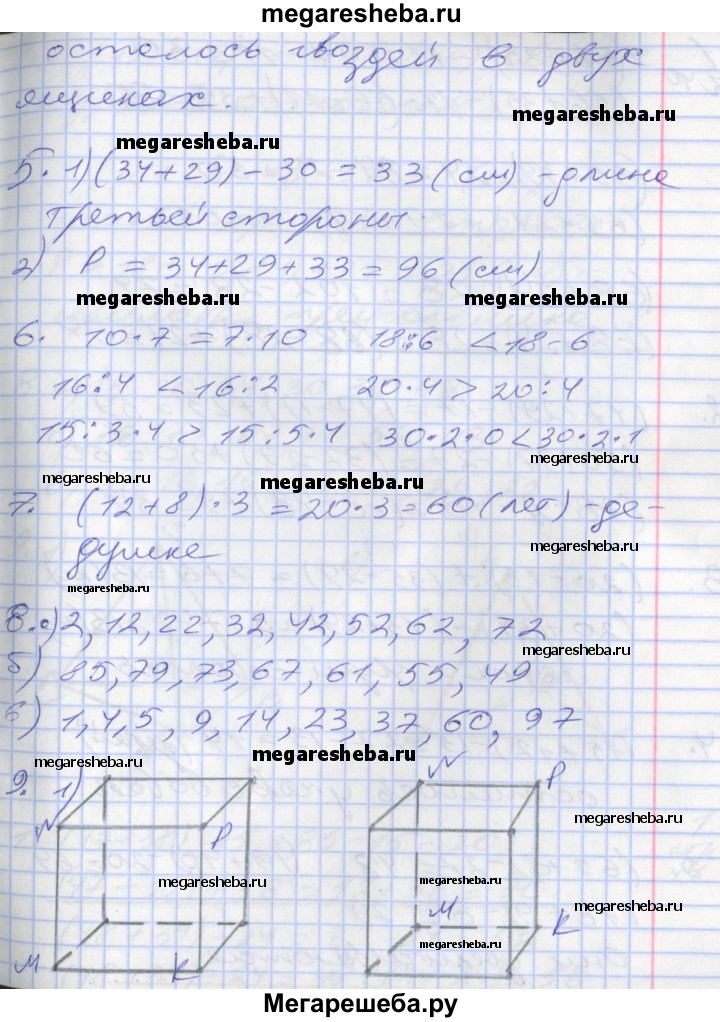 megaresheba.ru
осталось гвоздей в двух
ящиках.
megaresheba.ru
megaresheba.ru
5. 1) (34+29) - 30 = 33 (см) - длина
третьей стороны.
2) P = 34+29+33 = 96 (см)
megaresheba.ru
megaresheba.ru
6. 10·7 = 7·10 18:6 < 18-6
16:4 < 16:2 20·4 > 20:4
15:3·4 > 15:5·4 30·2·0 < 30·2·1
megaresheba.ru
megaresheba.ru
megaresheba.ru
7. (12+8)·3 = 20·3 = 60 (лет) - де-
душке
megaresheba.ru
megaresheba.ru
8. а) 2, 12, 22, 32, 42, 52, 62, 72
megaresheba.ru
б) 85, 79, 73, 67, 61, 55, 49
в) 1, 4, 5, 9, 14, 23, 37, 60, 97
megaresheba.ru
megaresheba.ru
9. 1)
N P N P
megaresheba.ru
megaresheba.ru
megaresheba.ru
megaresheba.ru
M K M K
megaresheba.ru
Мегарешеба.ру